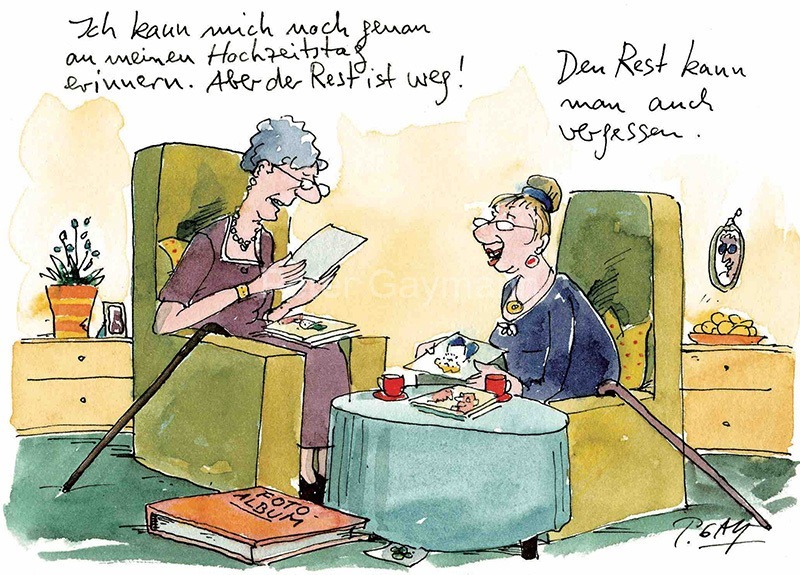 Ich kann mich noch genau
an meinen Hochzeitstag
erinnern. Aber der Rest ist weg!
Den Rest kann
man auch
vergessen.
Peter Gaymann
FOTO-
ALBUM
P. GAY